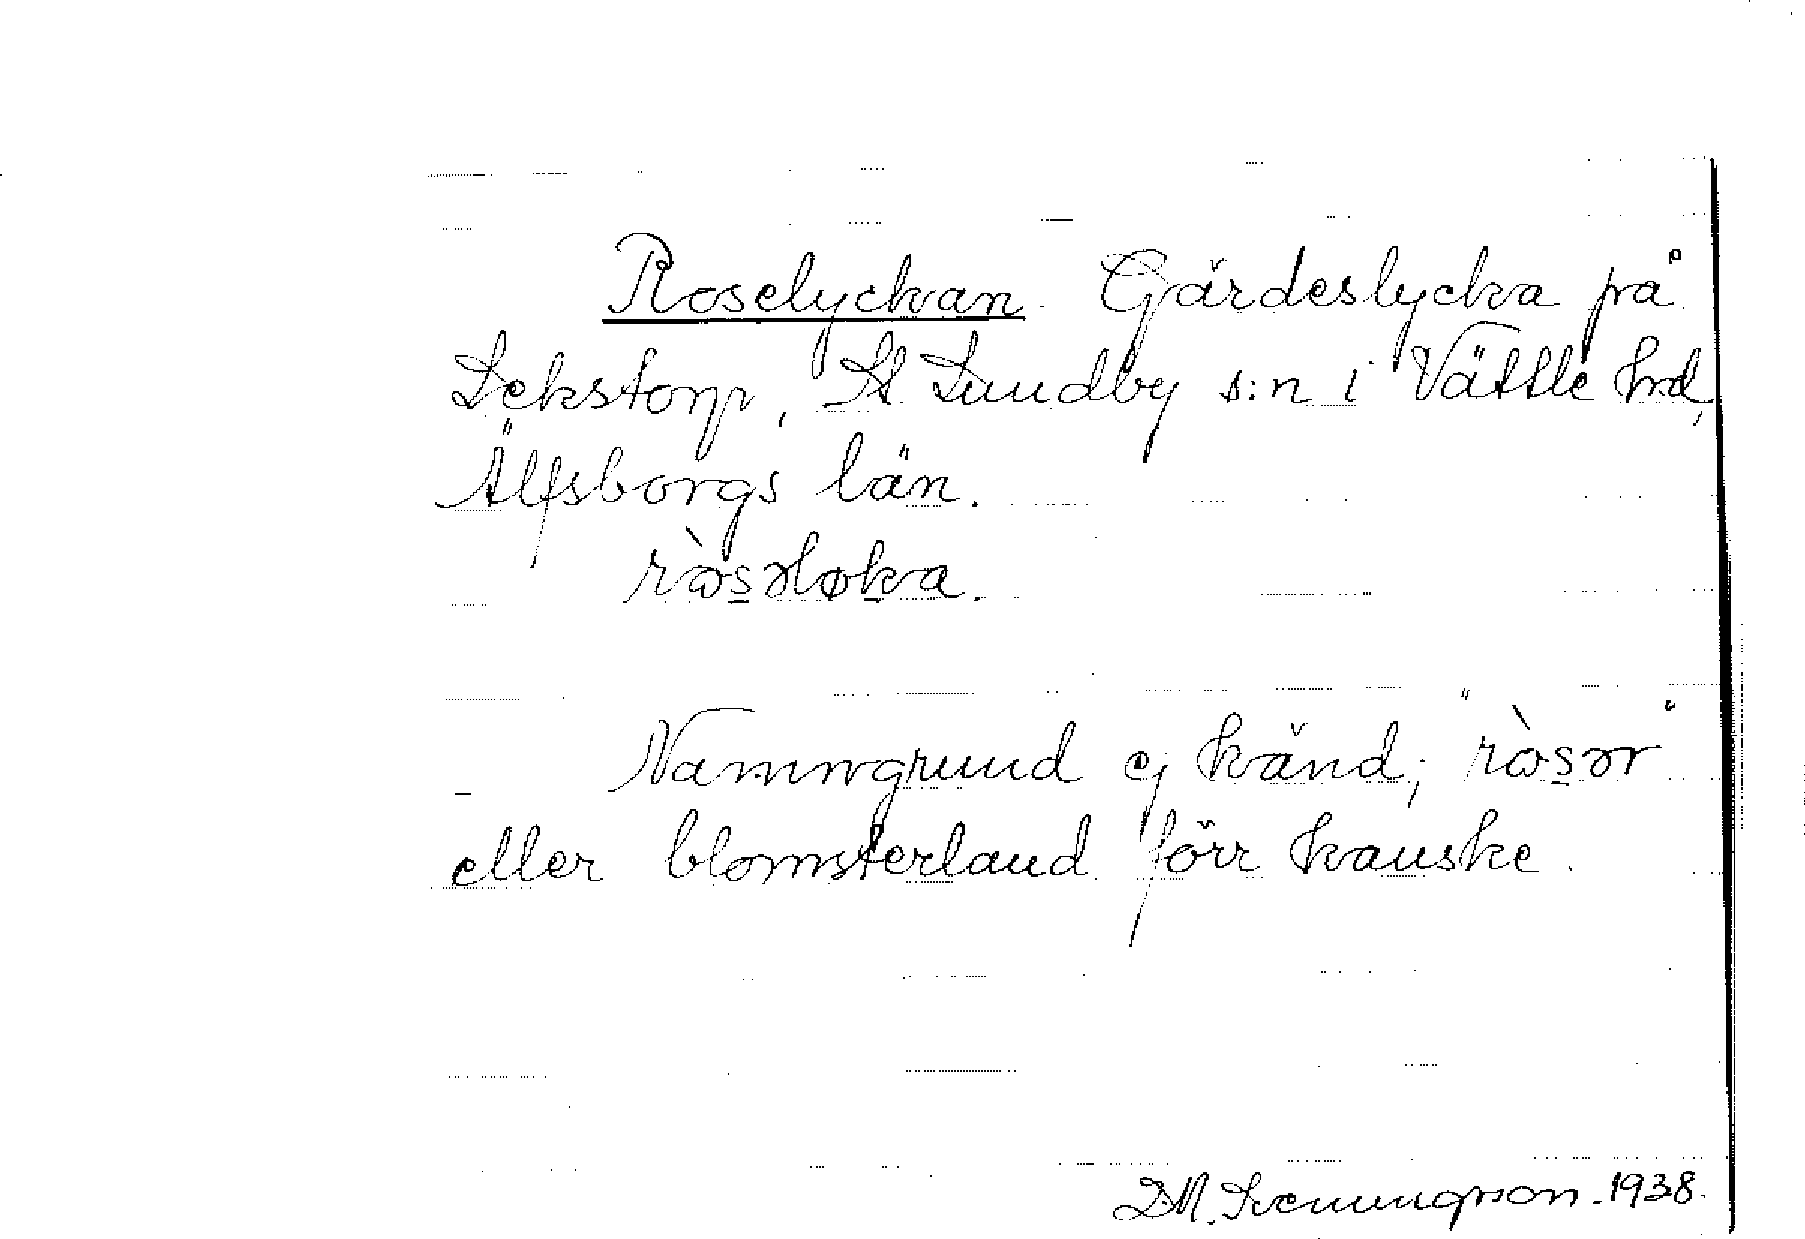 Roselyckan. Gärdeslycka på
Lekstorp, St Lundby s:n i Vättle hd,
Älfsborgs län.
ròsəløka.
Namngrund ej känd; "ròsər"
eller blomsterland förr kanske.
D.M. Svenungson. 1938.